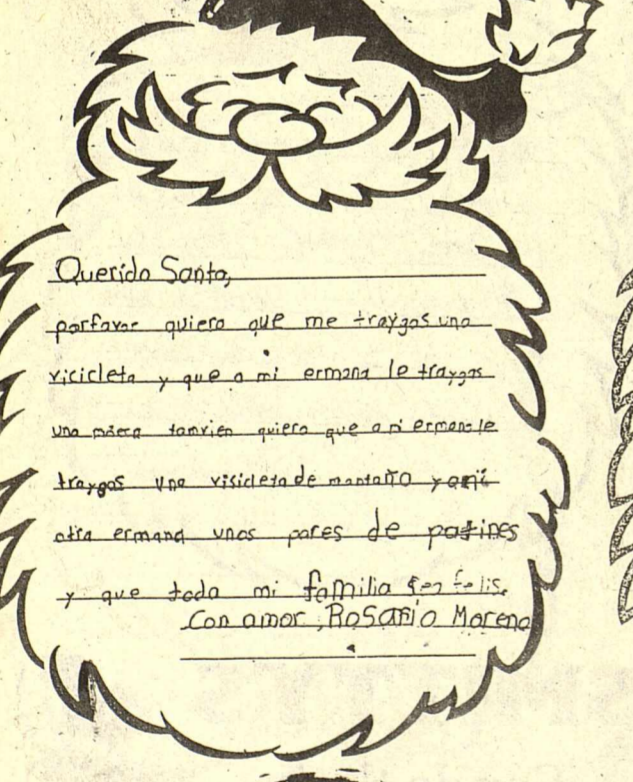 Querido Santa,
porfavor quiero que me traygas una
vicicleta y que a mi ermana le traygas
una mñeca tanvien quiero que a mi ermano le
traygas una visicleta de montaño y a mi
otra ermana unos pares de patines
y que toda mi familia sea felis.
Con amor, Rosario Moreno